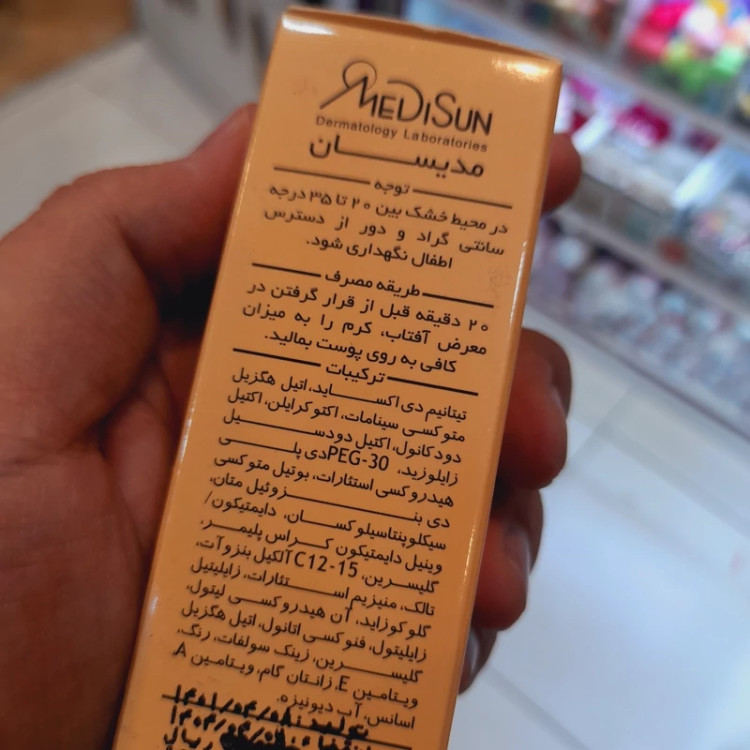 MEDISUN
Dermatology Laboratories
مدیسان
توجه
در محیط خشک بین ۲۰ تا ۳۵ درجه
سانتی گراد و دور از دسترس
اطفال نگهداری شود.
طریقه مصرف
۲۰ دقیقه قبل از قرار گرفتن در
معرض آفتاب، کرم را به میزان
کافی به روی پوست بمالید.
ترکیبات
تیتانیم دی اکساید، اتیل هگزیل
متوکسی سینامات، اکتوکرایلن، اکتیل
دودکانول، اکتیل دودسیل
زایلوزید، PEG-30 دی پلی
هیدروکسی استئارات، بوتیل متوکسی
دی بنزوئیل متان،
سیکلوپنتاسیلوکسان، دایمتیکون/
وینیل دایمتیکون کراس پلیمر،
گلیسرین، C12-15 آلکیل بنزوآت،
تالک، منیزیم استئارات، زایلیتیل
گلوکوزاید، آن هیدروکسی لیتول،
زایلیتول، فنوکسی اتانول، اتیل هگزیل
گلیسرین، زینک سولفات، رنگ،
ویتامین E، زانتان گام، ویتامین A،
اسانس، آب دیونیزه.
تولید: ۱۴۰۱/۰۴/۰۸
۱۴۰۴/۰۴/۰۸
ریال